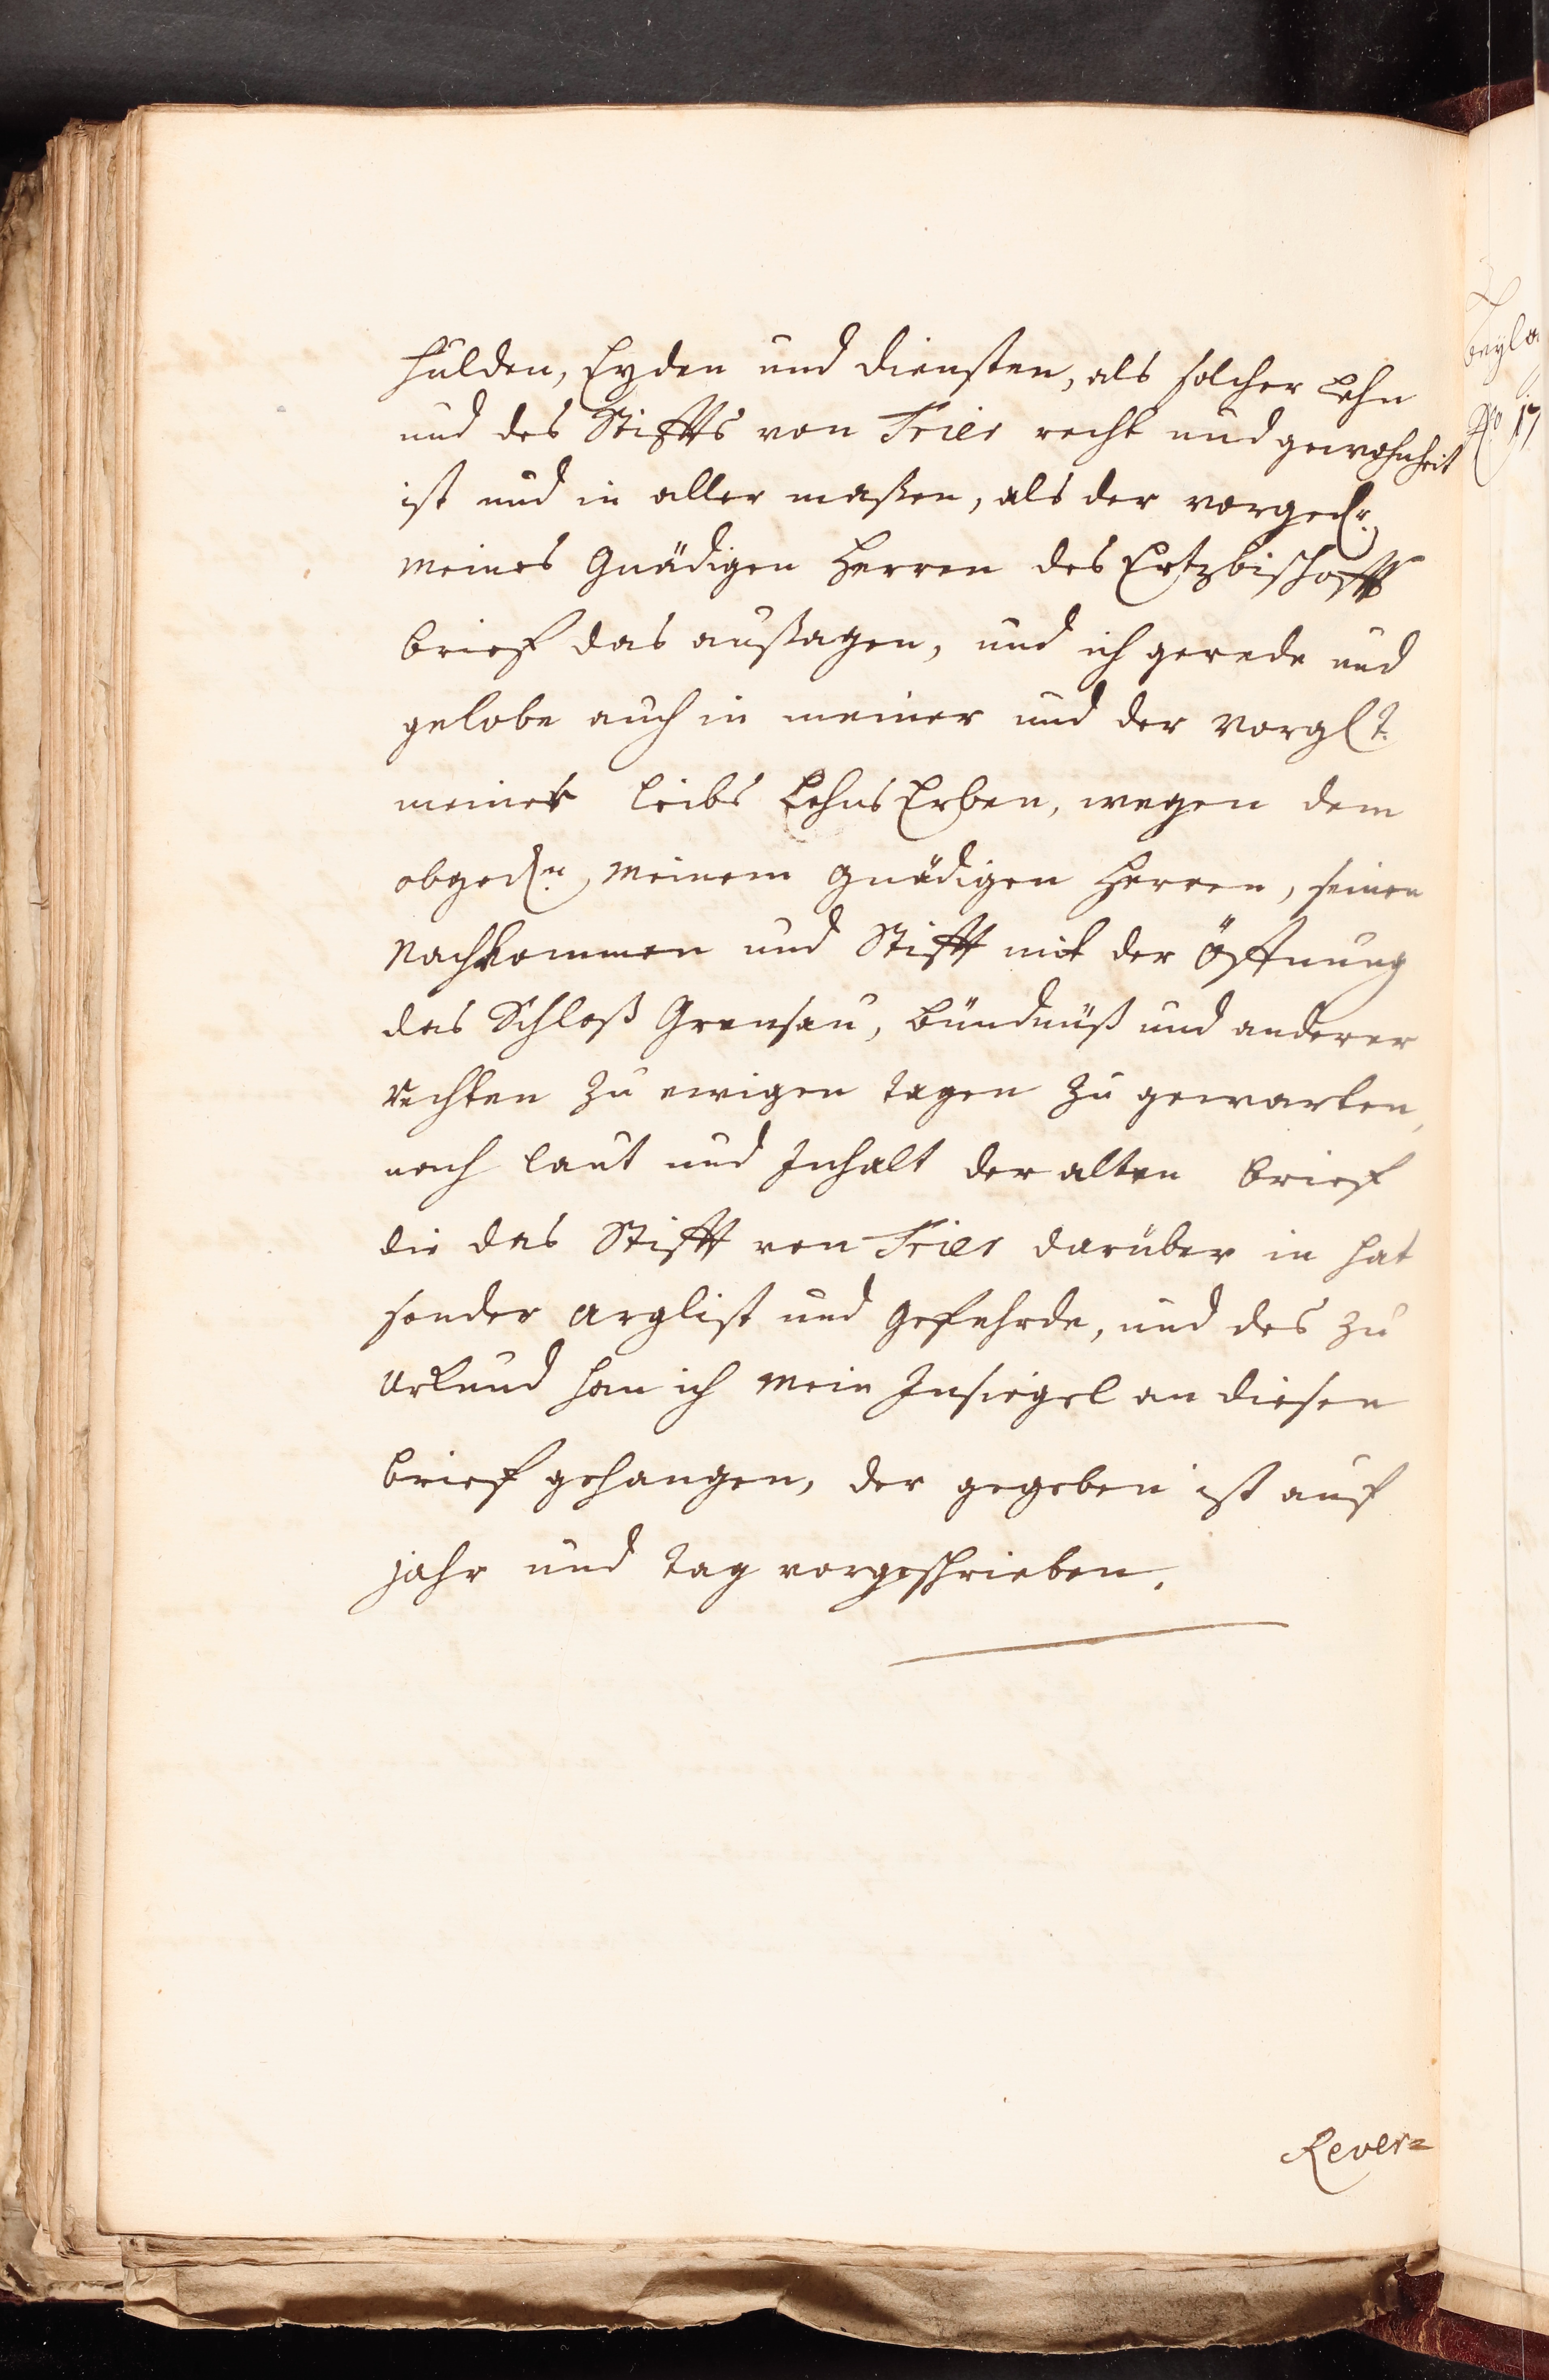 hulden, Eyden und diensten, als solcher Lehn
und des Stiffts von Trier recht und gewohnheit
ist und in aller maßen, als der vorged.r
meines Gnädigen Herren des Ertzbischoffs
brief das außagen, und ich gerede und
gelobe auch in meiner und der vorgl.t
meiner leibs Lehns Erben, wegen dem
obged.n, meinem gnädigen Herren, seinen
Nachkommen und Stifft mit der öffnung
des Schloß Grensau, bündnüß und anderer
rechten zu ewigen tagen zu gewarten,
nach laut und Inhalt der alten brief
die das Stifft von Trier darüber in hat
sonder arglist und gefehrde, und des zu
Urkund han ich mein Insiegel an diesen
brief gehangen, der gegeben ist auf
jahr und tag vorgeschrieben.
Rever=
beyla
No 17